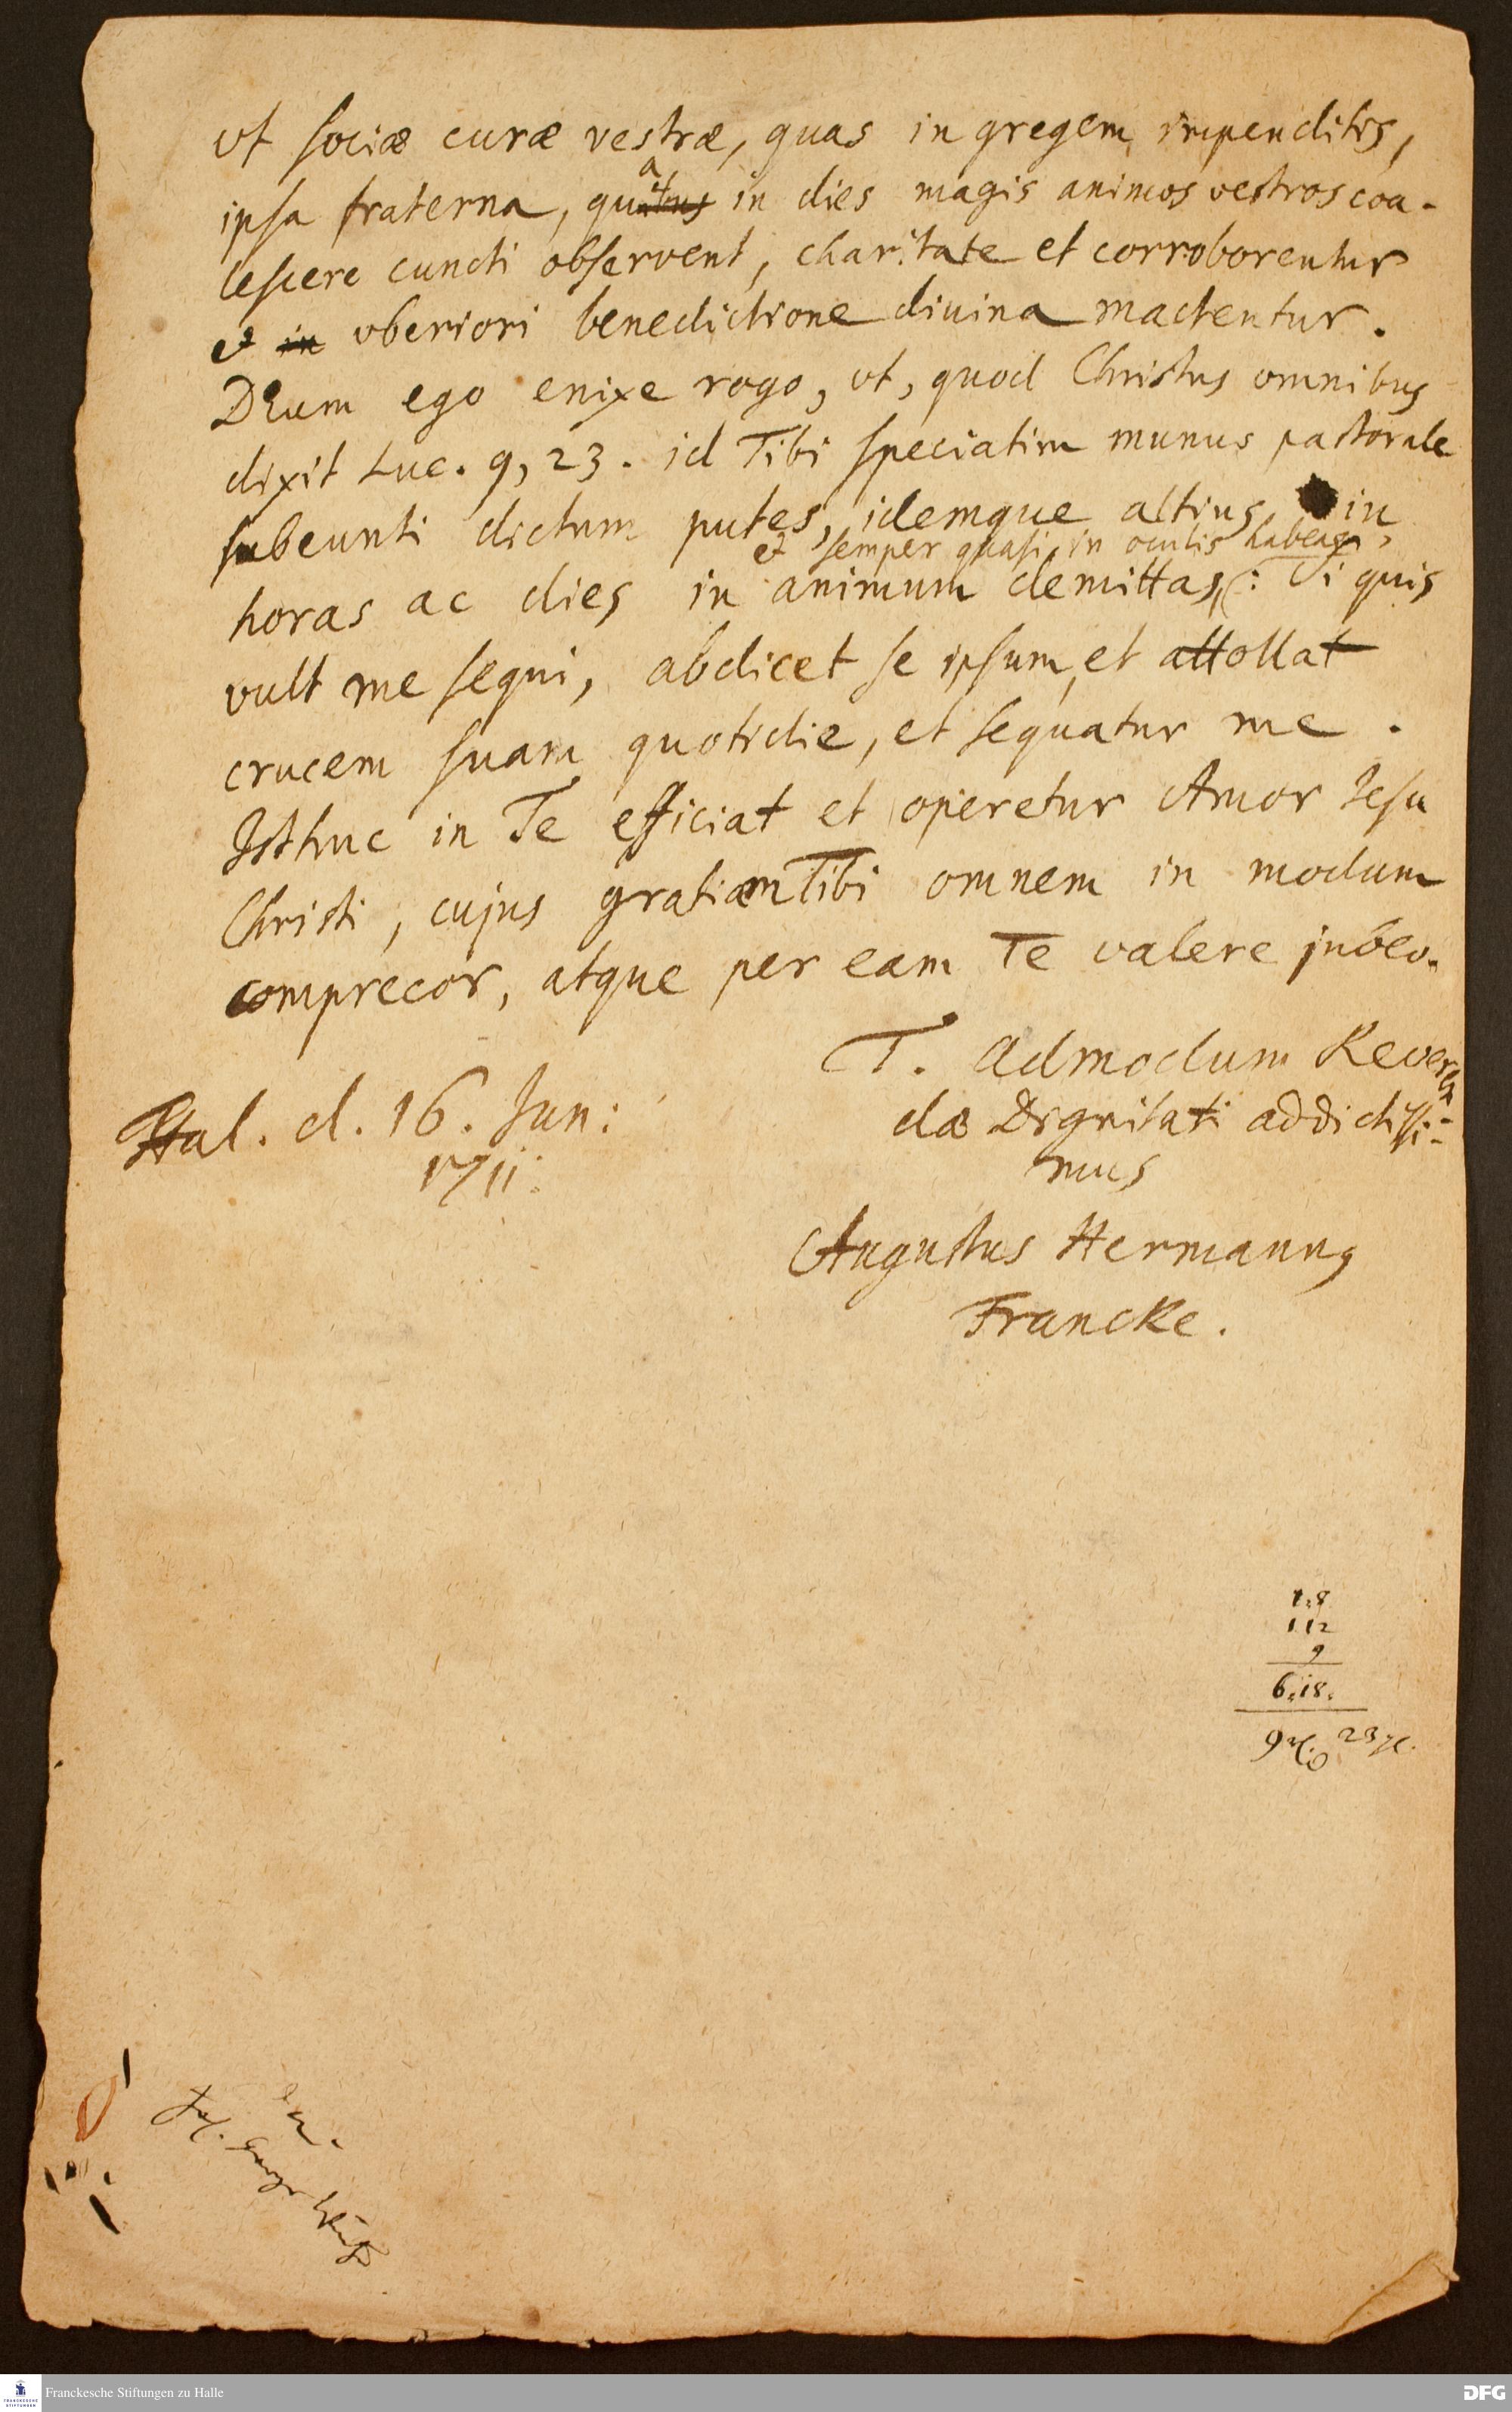 ut sociæ curæ vestræ, quas in gregem impenditis,
ipsa fraterna, qua in dies magis animos vestros coa-
lescere cuncti observent, charitate et corroborentur
et uberiori benedictione divina mactentur.
DEum ego enixe rogo, ut, quod Christus omnibus
dixit Luc. 9, 23. id Tibi speciatim munus pastorale
subeunti dictum putes, idemque altius, in
et semper quasi in oculis habeas,
horas ac dies in animum demittas: Si quis
vult me sequi, abdicet se ipsum, et attollat
crucem suam quotidie, et sequatur me.
Isthuc in Te efficiat et operetur Amor Jesu
Christi, cujus gratiam Tibi omnem in modum
comprecor, atque per eam Te valere jubeo.
T. admodum Reveren-
dæ Dignitati addictissi-
mus
Hal. d. 16. Jun:
1711.
Augustus Hermannus
Francke.
1.8
1 12
9
6.18.
Franckesche Stiftungen zu Halle
DFG